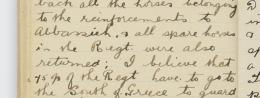 back all the horses belonging
to the reinforcements to
Abbassieh, & all spare horses
in the Regt were also
returned; I believe that
75% of the Regt have to go to
the South of Greece to guard